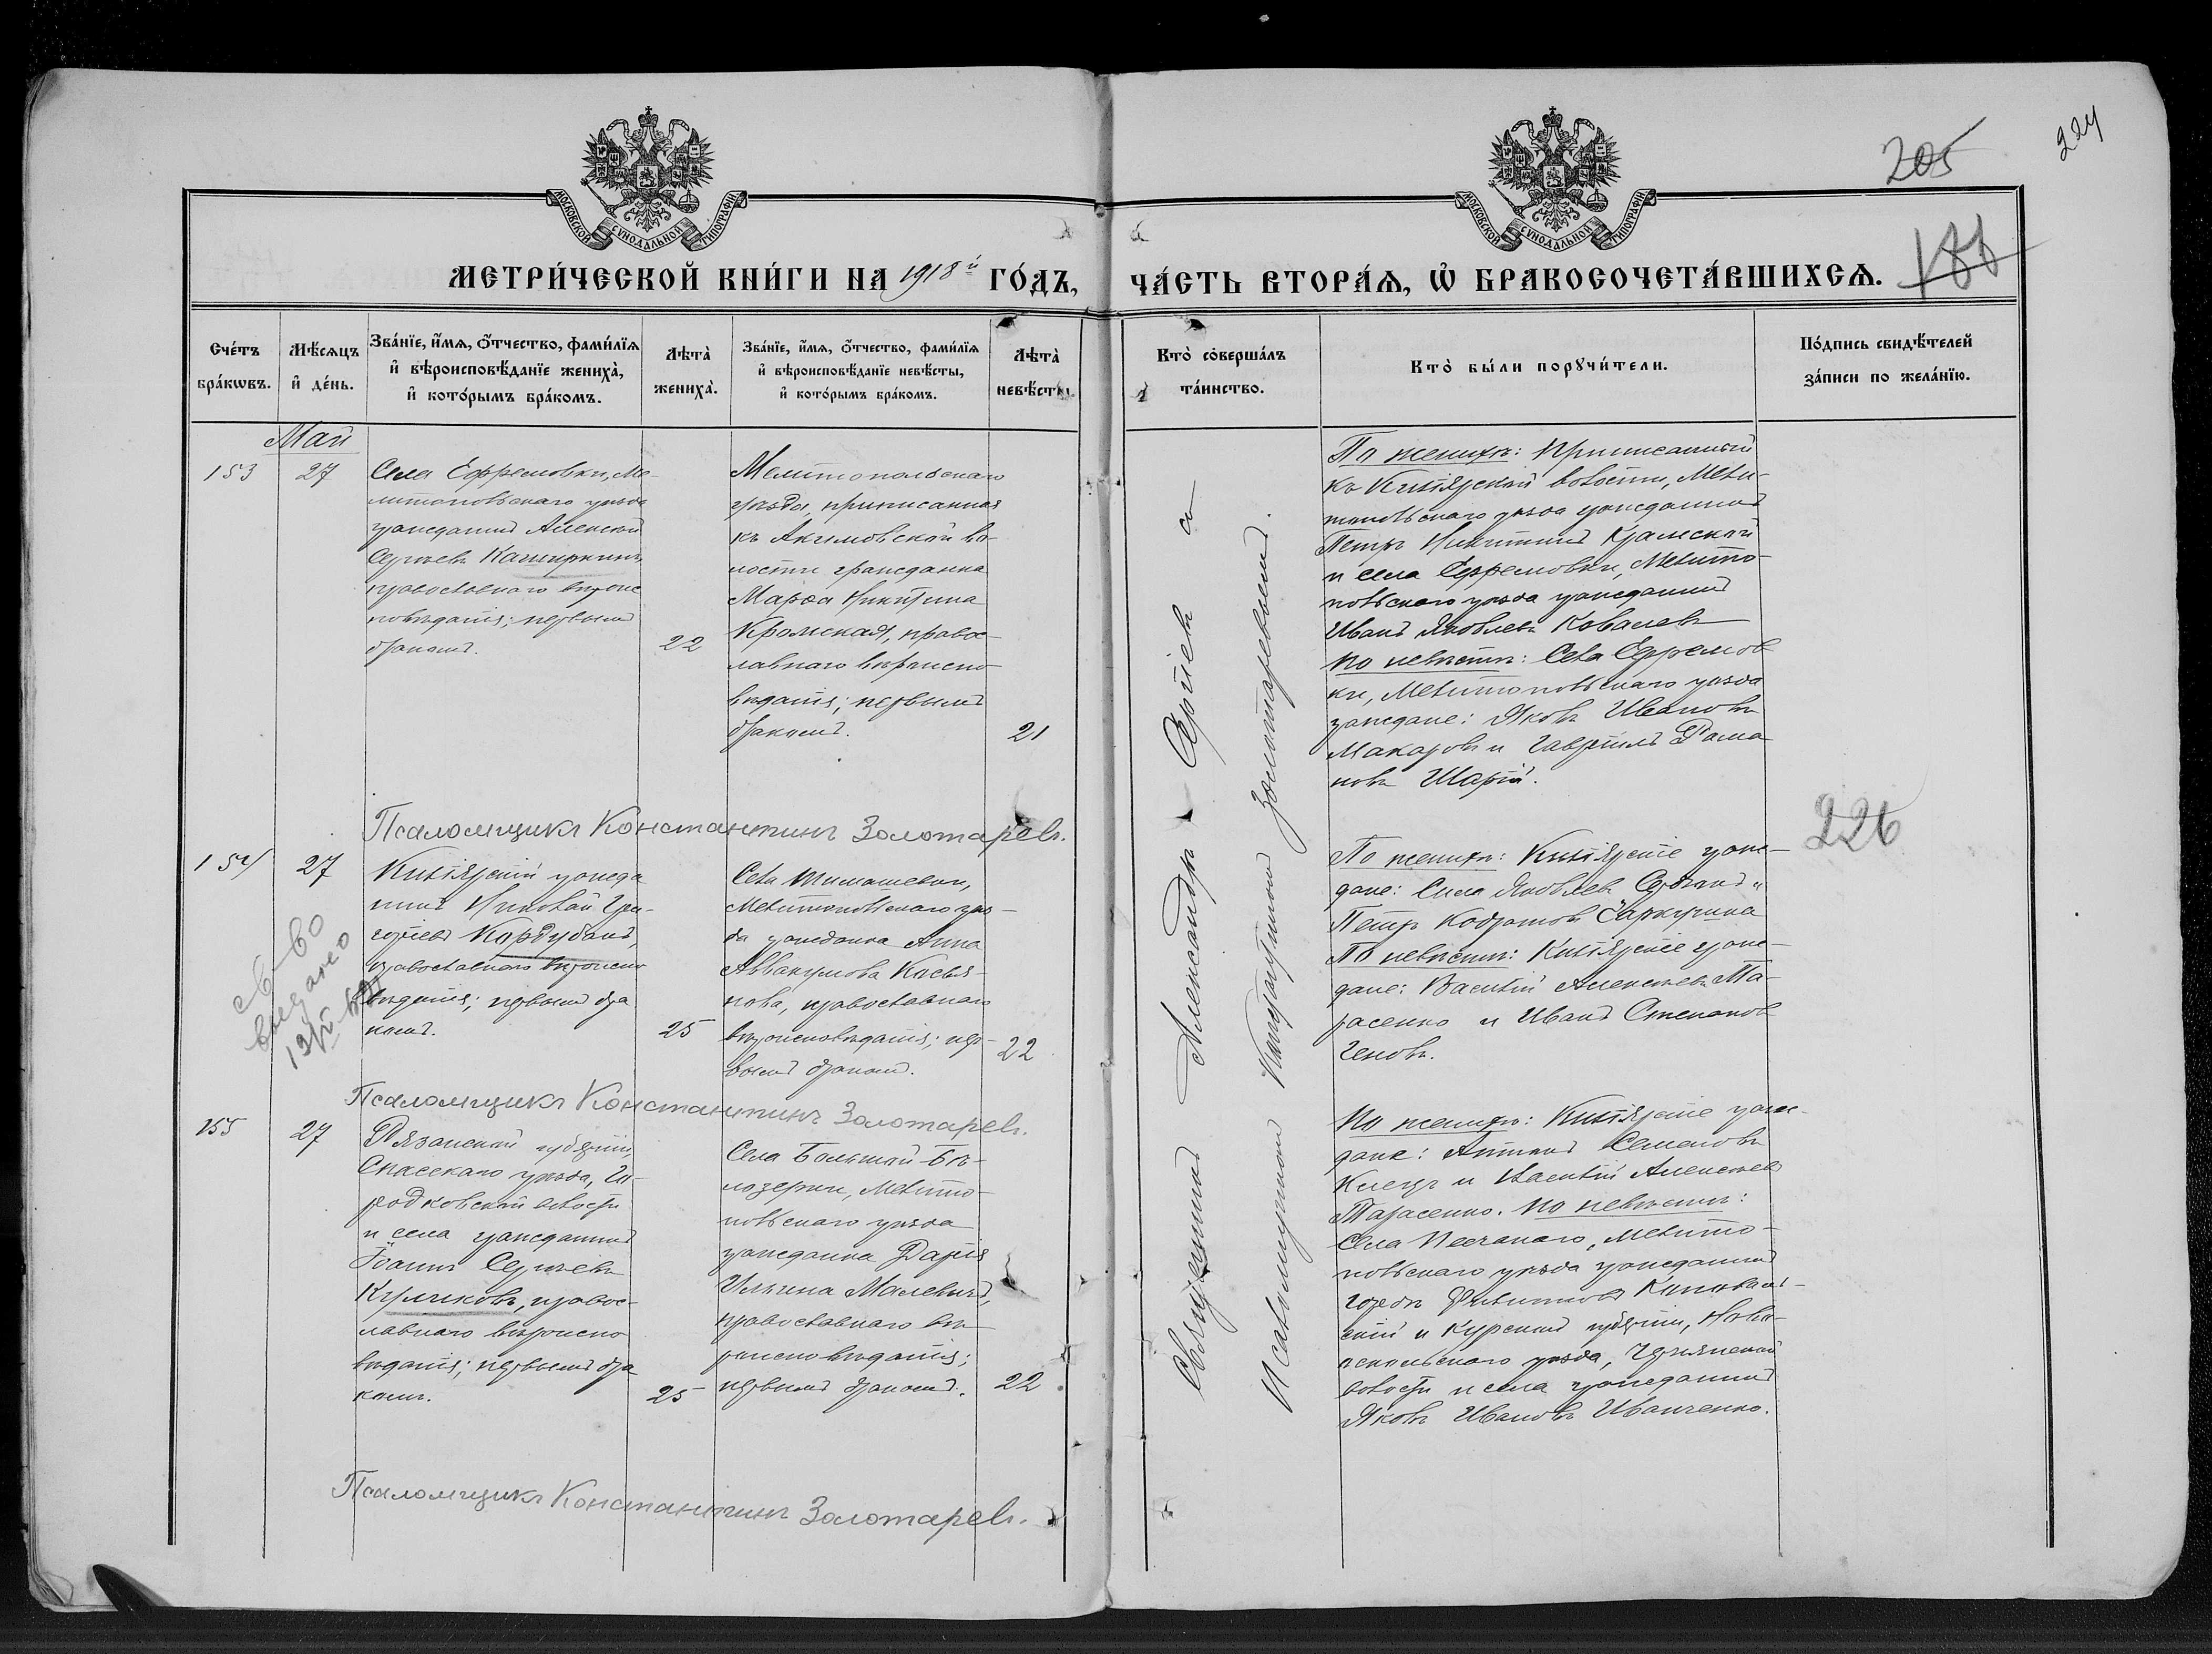 205
224
188
МОСКОВСКОЙ СѴНОДАЛЬНОЙ ТИПОГРАФІИ
МОСКОВСКОЙ СѴНОДАЛЬНОЙ ТИПОГРАФІИ
МЕТРИ́ЧЕСКОЙ КНИ́ГИ НА 1918й ГО́ДЪ,
ЧА́СТЬ ВТОРА́Ѧ, Ѡ҆ БРАКОСОЧЕТА́ВШИХСѦ.
Сче́тъ бра́кѡвъ.
Мѣ́сяцъ и҆ де́нь.
Зва́нїе, и҆́мѧ, ѻ҆́тчество, фами́лїѧ
и҆ вѣроисповѣ́данїе жениха̀,
и҆ кото́рымъ бра́комъ.
Лѣта̀ жениха̀.
Зва́нїе, и҆́мѧ, ѻ҆́тчество, фами́лїѧ
и҆ вѣроисповѣ́данїе невѣ́сты,
и҆ кото́рымъ бра́комъ.
Лѣта̀ невѣ́сты.
Кто̀ соверша́лъ
та́инство.
Кто̀ бы́ли порꙋчи́тели.
По́дпись свидѣ́телей
за́писи по жела́нїю.
Май
153
27
Села Ефремовки, Ме-
литопольскаго уѣзда
гражданинъ Алексѣй
Сергѣевъ Каширкинъ,
православнаго вѣроис
повѣданія; первымъ
бракомъ.
22
Мелитопольскаго
уѣзда, приписанная
къ Акимовской во-
лости гражданка
Марѳа Никитина
Кромская, правос-
лавнаго вѣроиспо-
вѣданія; первымъ
бракомъ.
21
По женихѣ: Приписанный
къ Кизіярской волости, Мели-
топольскаго уѣзда гражданинъ
Петръ Никитинъ Крамской
и села Ефремовки, Мелито-
польскаго уѣзда гражданинъ
Иванъ Яковлевъ Ковалевъ
По невѣстѣ: Села Ефремов
ки, Мелитопольскаго уѣзда
граждане: Яковъ Ивановъ
Макаровъ и Гавріилъ Рома
новъ Шарій.
Псаломщикъ Константинъ Золотаревъ.
154
27
Кизіярскій гражда
нинъ Николай Гри-
горьевъ Кордубанъ,
православнаго вѣроиспо
вѣданія; первымъ бра
комъ.
25
Села Тимашевки,
Мелитопольскаго уѣз-
да гражданка Анна
Аввакумова Касья-
нова, православнаго
вѣроисповѣданія; пер-
вымъ бракомъ.
22
По женихѣ: Кизіярскіе граж-
дане: Сила Яковлевъ и
Петръ
По невѣстѣ: Кизіярскіе граж-
дане: Василій Алексѣевъ Та-
расенко и Иванъ Степановъ
Геновъ.
св-во
выдано
226
Псаломщикъ Константинъ Золотаревъ.
155
27
Рязанской губерніи,
Спасскаго уѣзда, Го-
родковской волости
и села гражданинъ
Іоаннъ Сергѣевъ
Куликовъ, правос-
лавнаго вѣроиспо
вѣданія; первымъ бра
комъ.
25
Села Большой-Бѣ-
лозерки, Мелито-
польскаго уѣзда
гражданка Дарія
Ильина Малевичъ,
православнаго вѣ-
роисповѣданія;
первымъ бракомъ.
22
По женихѣ: Кизіярскіе граж-
дане: Антонъ Семеновъ
и Василій Алексѣевъ
Тарасенко. По невѣстѣ:
Села Песчанаго, Мелито-
польскаго уѣзда гражданинъ
Филиповъ Коноваль-
скій и Курской губерніи, Ново-
оскольскаго уѣзда, Чернянской
волости и села гражданинъ
Яковъ Ивановъ Иванченко.
Псаломщикъ Константинъ Золотаревъ.
Священникъ Александръ Сергѣевъ съ
Псаломщикомъ Константиномъ Золотаревымъ.